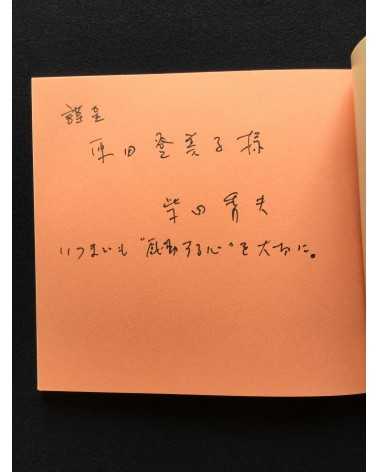 謹呈
原田登美子様
柴田秀夫
いつまでも“感動する心”を大切に。